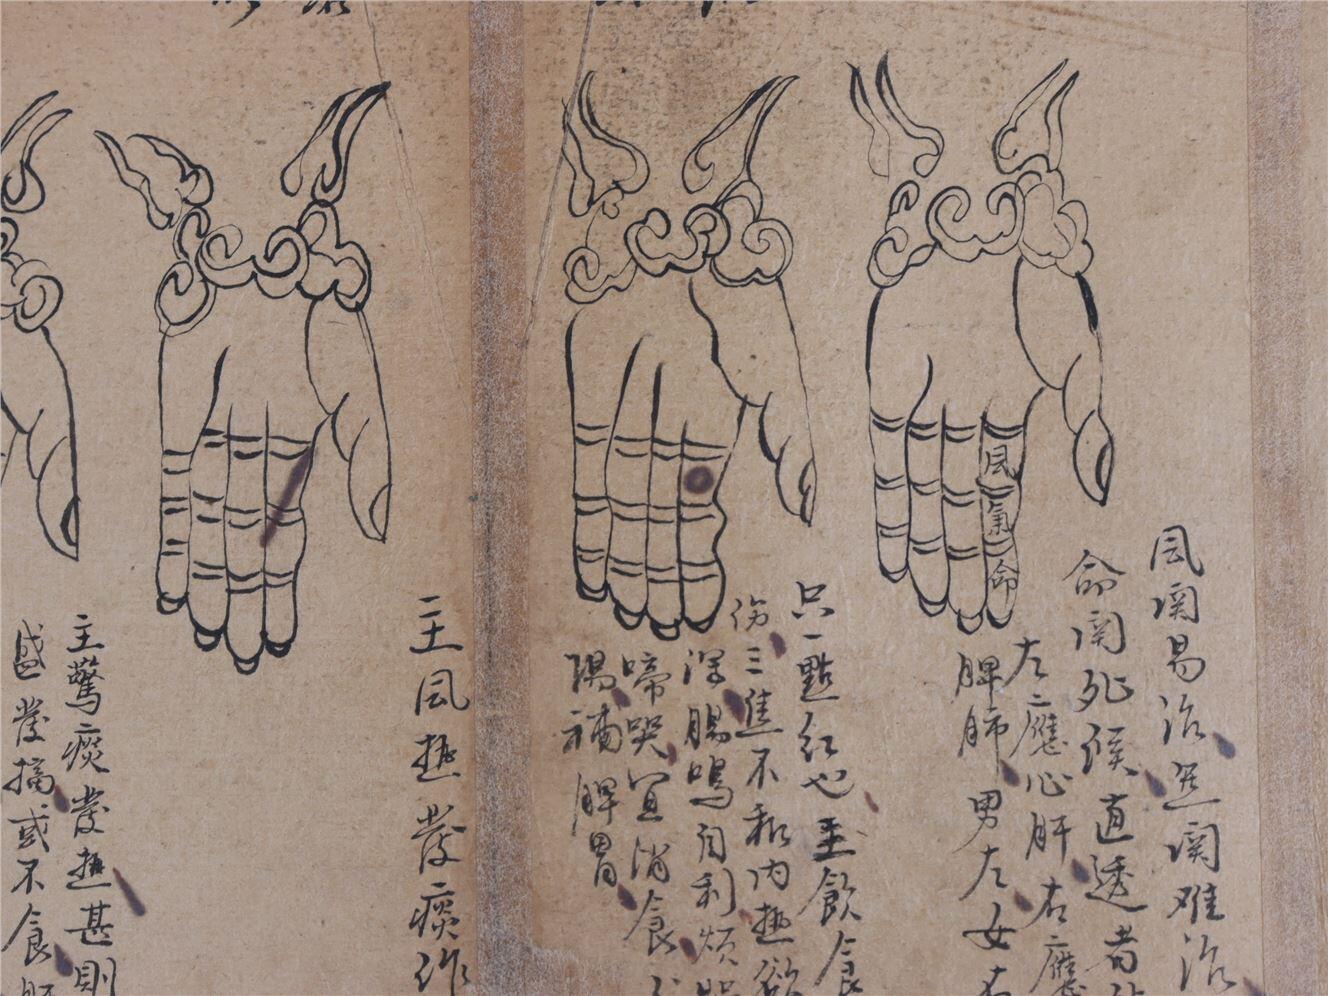 風
氣
命
風関易治氣関难治
命関死候直透者
左應心肝右應
脾肺男左女右
只一點紅也主飲食
傷三焦不和内热欲
瀉腸鳴自利烦
啼哭宜消食
陽補脾胃
主風热發痰作
主驚痰發热甚則
盛發搐或不食